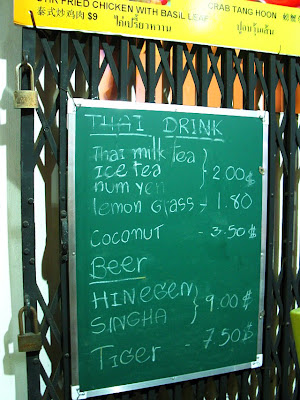 STIR FRIED CHICKEN WITH BASIL LEAF
泰式炒鸡肉 $9
CRAB TANG HOON
ไก่เปรี้ยวหวาน
ปูอบวุ้นเส้น
THAI DRINK
Thai milk tea
ice tea
num yen
} 2.00$
lemon Glass - 1.80
COCONUT - 3.50 $
Beer
HINEGEN
SINGHA
} 9.00 $
TIGER - 7.50 $